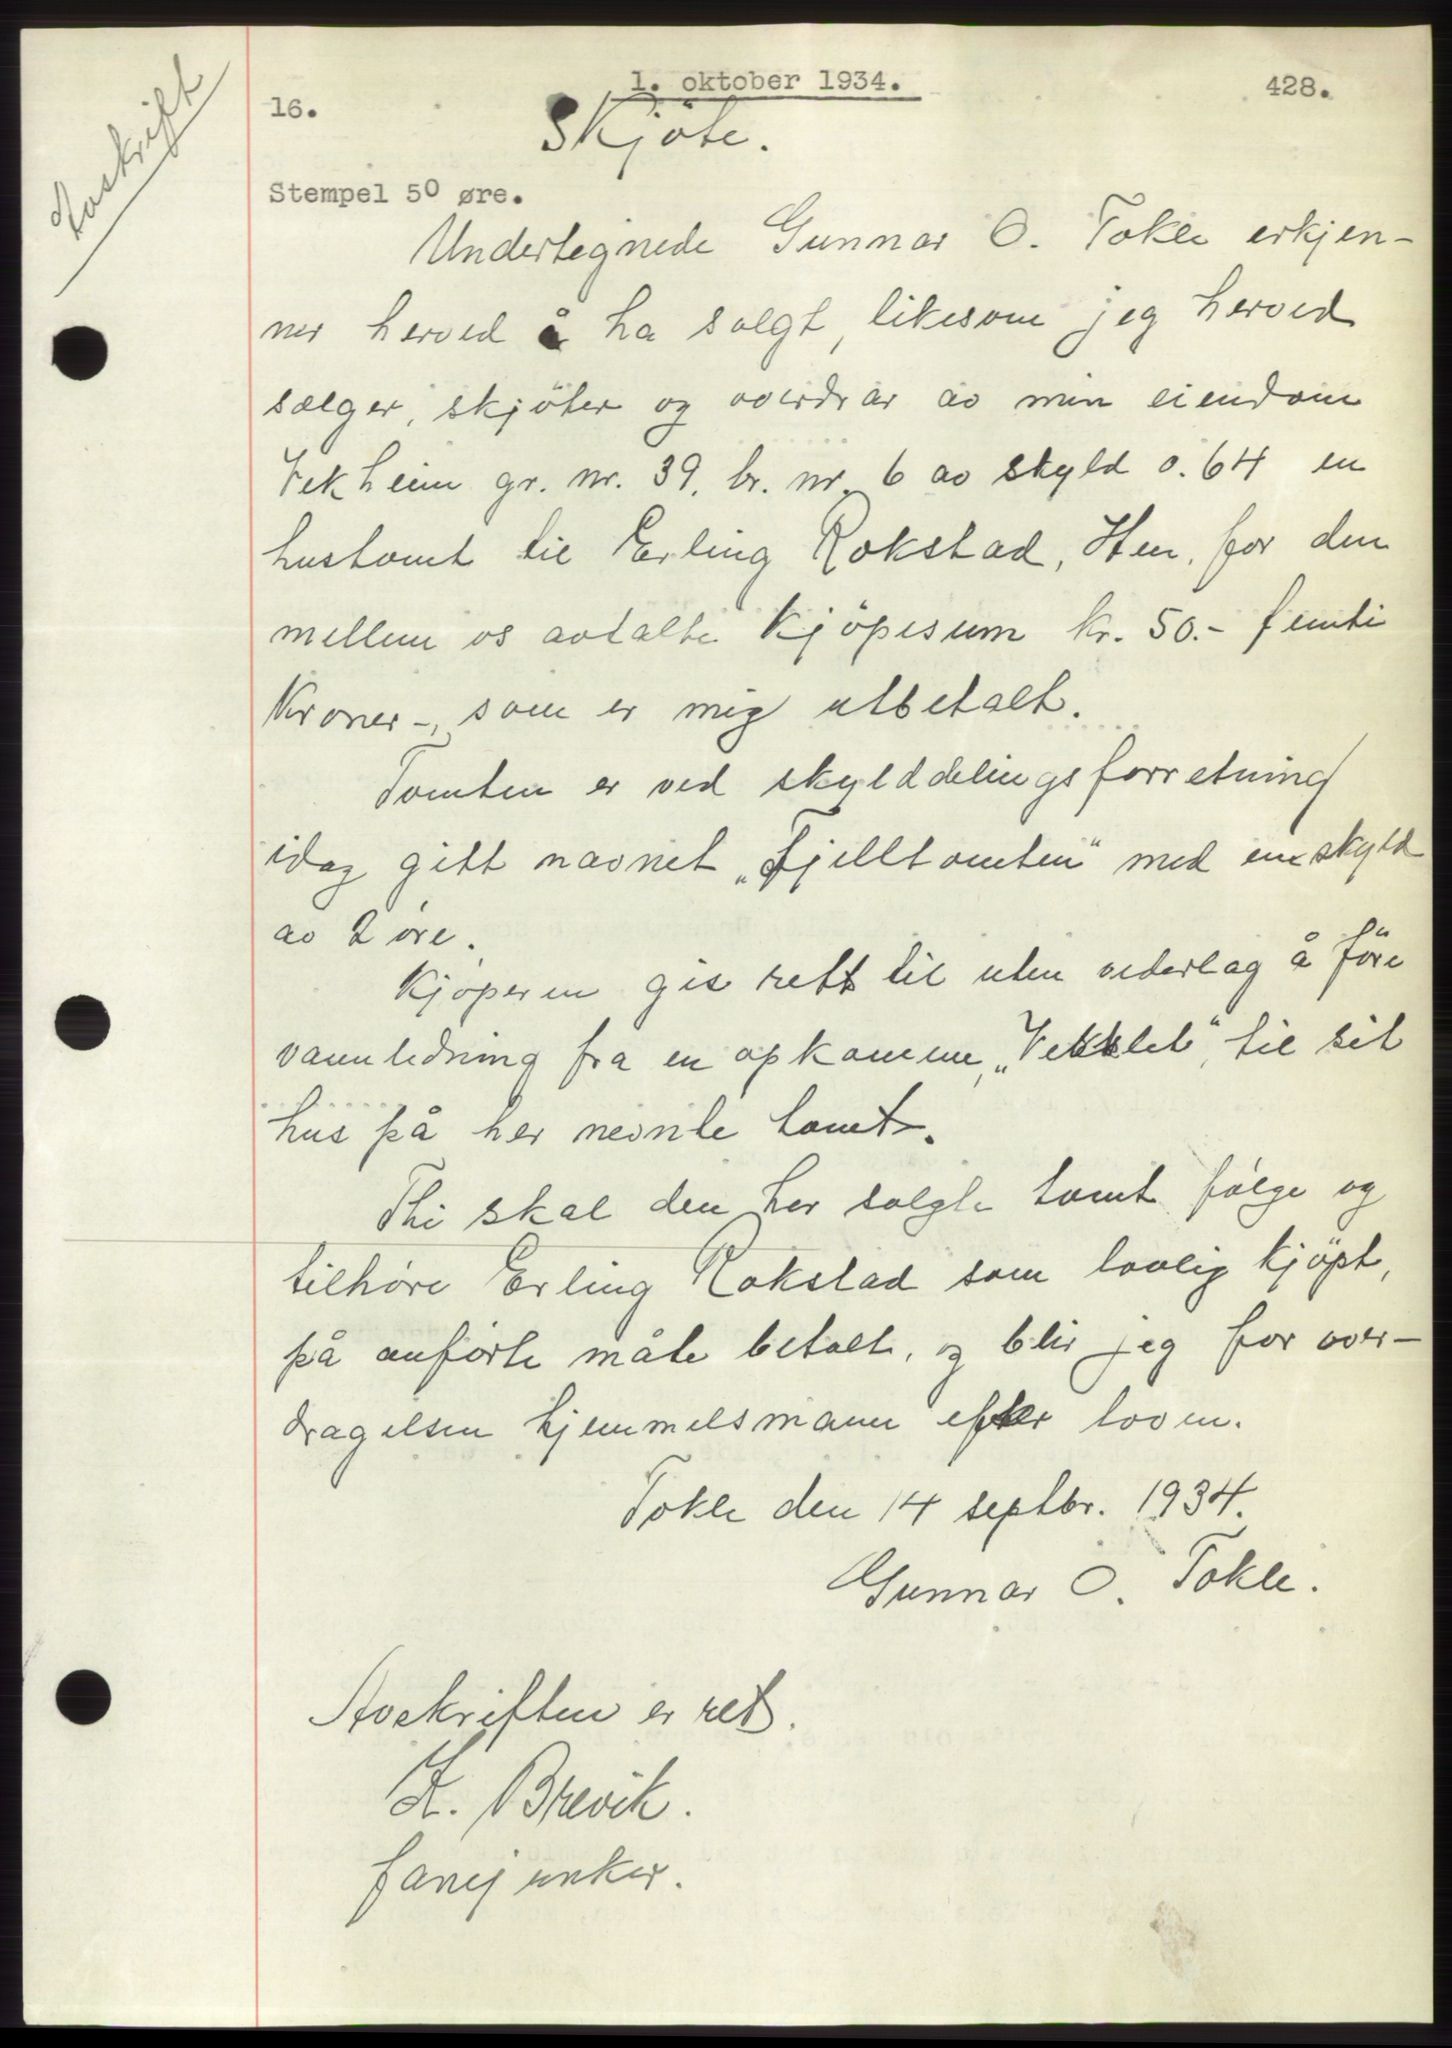 1. oktober 1934.
428.
16.
Avskrift
Skjöte.
Stempel 50 øre.
Undertegnede Gunnar O. Tokle erkjen-
ner herved å ha solgt, likesom jeg herved
sælger, skjöter og overdrar av min eiendom
Vekheim gr. nr. 39, br. nr. 6 av skyld 0.64 en
hustomt til Erling Rokstad, Hen, for den
mellem os avtalte kjöpesum kr. 50.- femti
kroner -, som er mig utbetalt.
Tomten er ved skylddelingsforretning
idag gitt navnet „Fjelltomten" med en skyld
av 2 öre.
Kjöperen gis rett til uten vederlag å före
vannledning fra en opkomme, „Vekklet", til sit
hus på her nevnte tomt.
Thi skal den her solgte tomt fölge og
tilhöre Erling Rokstad som lovlig kjöpt,
på anförte måte betalt, og blir jeg for over-
dragelsen hjemmelsmann efter loven.
Tokle den 14 septbr. 1934.
Gunnar O. Tokle.
Avskriften er ret.
K. Brevik.
fanejunker.